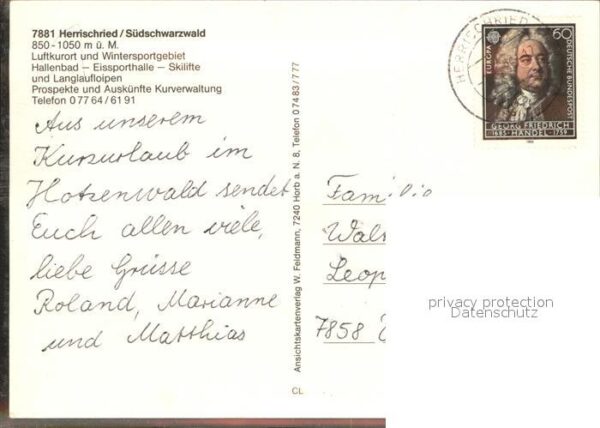 7881 Herrischried / Südschwarzwald
850 - 1050 m ü. M.
Luftkurort und Wintersportgebiet
Hallenbad – Eissporthalle – Skilifte
und Langlaufloipen
Prospekte und Auskünfte Kurverwaltung
Telefon 0 77 64 / 61 91
Aus unserem
Kurzurlaub im
Hotzenwald sendet
Euch allen viele,
liebe Grüsse
Roland, Marianne
und Matthias
Ansichtskartenverlag W. Feldmann, 7240 Horb a. N. 8, Telefon 0 74 83 / 7 77
CL
HERRISCHRIED
EUROPA
60
DEUTSCHE BUNDESPOST
GEORG FRIEDRICH
1685 HÄNDEL 1759
Familie
7858
privacy protection
Datenschutz